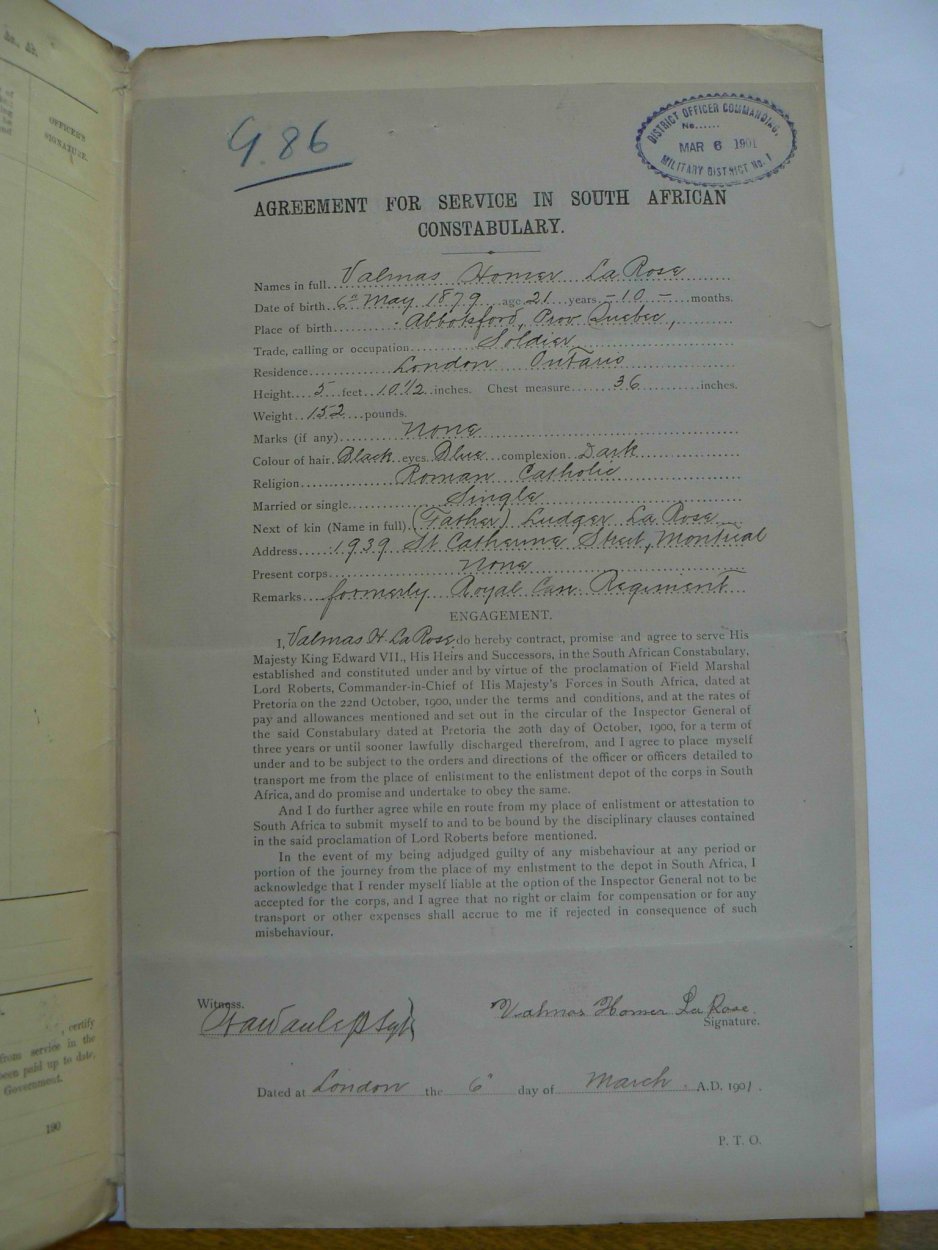 OFFICER'S
SIGNATURE.
G. 86
DISTRICT OFFICER COMMANDING,
No......
MAR 6 1901
MILITARY DISTRICT No. 1
AGREEMENT FOR SERVICE IN SOUTH AFRICAN
CONSTABULARY.
Names in full Valmas Homer La Rose
Date of birth 6th May 1879 age 21 years - 10 - months.
Place of birth Abbotsford, Prov Quebec,
Trade, calling or occupation Soldier
Residence London Ontario
Height 5 feet 10 1/2 inches. Chest measure 36 inches.
Weight 152 pounds.
Marks (if any) None
Colour of hair Black eyes Blue complexion Dark
Religion Roman Catholic
Married or single Single
Next of kin (Name in full) (Father) Ludger La Rose
Address 1939 St Catherine Street, Montreal
Present corps None
Remarks formerly Royal Can Regiment
ENGAGEMENT.
I, Valmas H La Rose do hereby contract, promise and agree to serve His
Majesty King Edward VII., His Heirs and Successors, in the South African Constabulary,
established and constituted under and by virtue of the proclamation of Field Marshal
Lord Roberts, Commander-in-Chief of His Majesty's Forces in South Africa, dated at
Pretoria on the 22nd October, 1900, under the terms and conditions, and at the rates of
pay and allowances mentioned and set out in the circular of the Inspector General of
the said Constabulary dated at Pretoria the 20th day of October, 1900, for a term of
three years or until sooner lawfully discharged therefrom, and I agree to place myself
under and to be subject to the orders and directions of the officer or officers detailed to
transport me from the place of enlistment to the enlistment depot of the corps in South
Africa, and do promise and undertake to obey the same.
And I do further agree while en route from my place of enlistment or attestation to
South Africa to submit myself to and to be bound by the disciplinary clauses contained
in the said proclamation of Lord Roberts before mentioned.
In the event of my being adjudged guilty of any misbehaviour at any period or
portion of the journey from the place of my enlistment to the depot in South Africa, I
acknowledge that I render myself liable at the option of the Inspector General not to be
accepted for the corps, and I agree that no right or claim for compensation or for any
transport or other expenses shall accrue to me if rejected in consequence of such
misbehaviour.
Witness.
Valmas Homer La Rose.
Signature.
Dated at London the 6th day of March A.D. 1901.
P. T. O.
, certify
from service in the
been paid up to date,
Government.
190